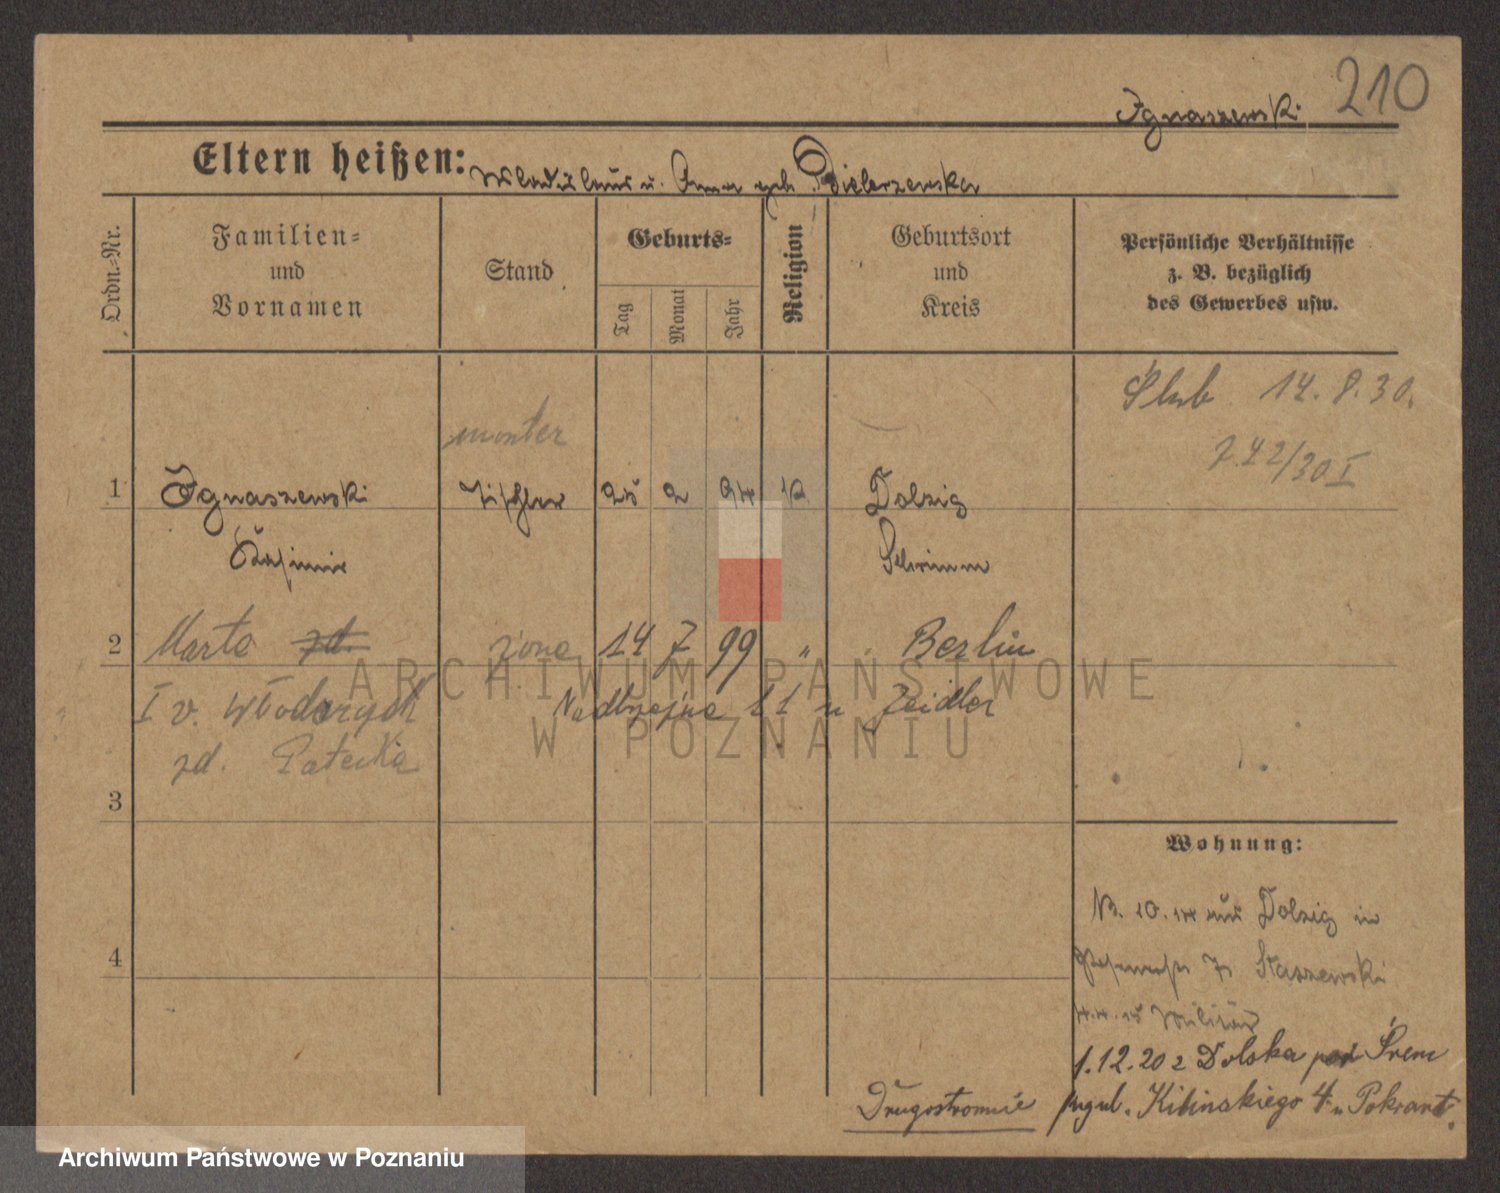 210
Ignaszewski
Eltern heißen: Wladislaus u. Anna geb.
Ordn.-Nr.
Familien-
und
Vornamen
Stand
Geburts-
Tag
Monat
Jahr
Religion
Geburtsort
und
Kreis
Persönliche Verhältnisse
z. B. bezüglich
des Gewerbes usw.
Ślub 14. 8. 30.
742/30 I
monter
1 Ignaszewski Tischler 25 2 94 k. Dolzig
Kasimir Schrimm
2 Marta zd. żona 14 7 99 " Berlin
I v. Włodarych Nadbrzeżna 11 u Zeidler
zd. Patecka
3
4
Wohnung:
10. 14 aus Dolzig in
Staszewski
4.4.15 Militär
1.12.20 z Dolska pod Śrem
Drugostronnie
ul. Kilinskiego 4 u Pokrant.
ARCHIWUM PAŃSTWOWE
W POZNANIU
Archiwum Państwowe w Poznaniu